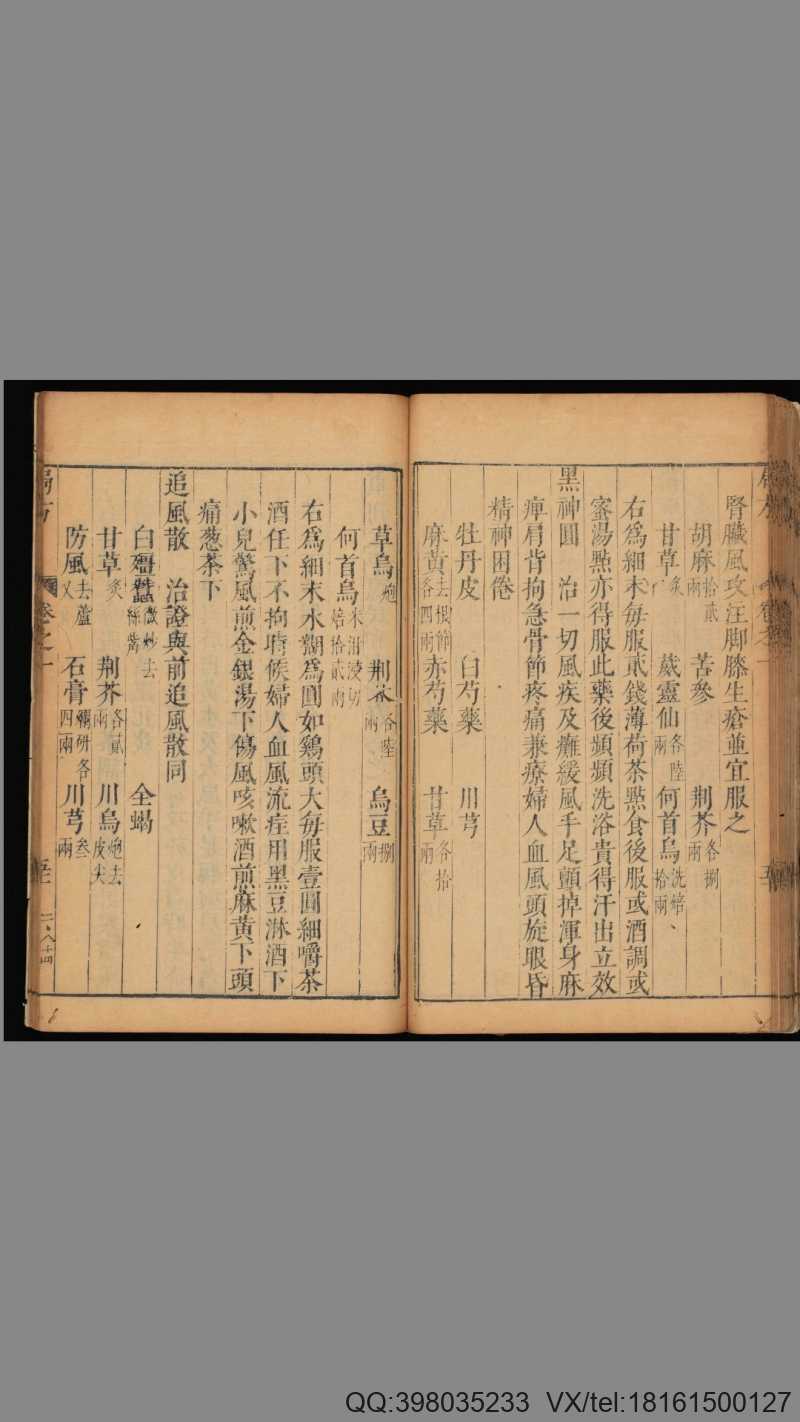 腎臟風攻注脚膝生瘡並宜服之
胡麻拾貳兩 苦參 荆芥各捌兩
甘草炙 葳靈仙各陸兩 何首烏洗焙拾兩
右爲細末每服貳錢薄荷茶點食後服或酒調或
蜜湯點亦得服此藥後頻頻洗浴貴得汗出立效
黑神圓 治一切風疾及癱緩風手足顫掉渾身麻
痺肩背拘急骨節疼痛兼療婦人血風頭旋眼昏
精神困倦
牡丹皮 白芍藥 川芎
麻黃去根節各四兩 赤芍藥 甘草各拾兩
草烏炮 荆芥各陸兩 烏豆捌兩
何首烏米泔浸切焙拾貳兩
右爲細末水糊爲圓如鷄頭大每服壹圓細嚼茶
酒任下不拘時候婦人血風流疰用黑豆淋酒下
小兒驚風煎金銀湯下傷風咳嗽酒煎麻黃下頭
痛葱茶下
追風散 治證與前追風散同
白殭蠶微炒去絲觜 全蝎
甘草炙 荆芥各貳兩 川烏炮去皮尖
防風去蘆叉 石膏爛研各四兩 川芎叁兩
局方 卷之一
QQ:398035233 VX/tel:18161500127